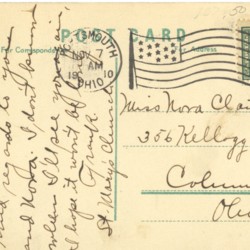 POST CARD
For Correspondence
Address
PORTSMOUTH
NOV
7 AM
1910
OHIO
Miss Nora Cla
356 Kellogg
Colum
Ohio
kind regards to you
and Nora. I don't know
when I'll see you
I hope it won't be
Frank.
St. Mary's Church